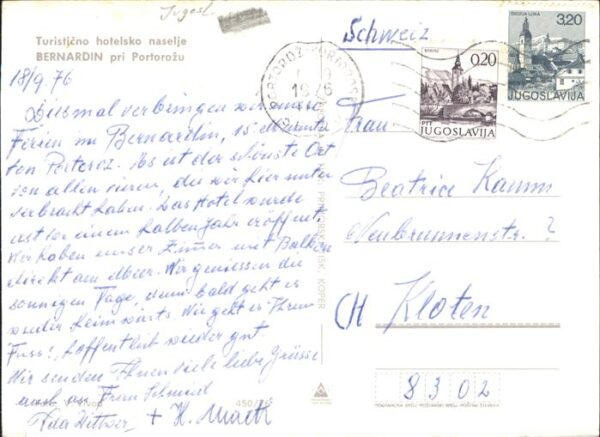 Jugosl.
Turistično hotelsko naselje
BERNARDIN pri Portorožu
18/9. 76
Diesmal verbringen wir unsere
Ferien im Bernardin, 15 Minuten
von Portoroz. Es ist der schönste Ort
von allen vieren, die wir hier unten
verbracht haben. Das Hotel wurde
erst vor einem halben Jahr eröffnet.
Wir haben unser Zimmer mit Balkon
direkt am Meer. Wir geniessen die
sonnigen Tage, denn bald geht es
wieder heimwärts. Wie geht es Ihrem
Fuss?, hoffentlich wieder gut.
Wir senden Ihnen viele liebe Grüsse
auch an Frau Schmid
+ H.
450/76
KOPER
PORTOROŽ PORTOROSE
1976
Schweiz
BOHINJ
0.20
PTT JUGOSLAVIJA
ŠKOFJA LOKA
3,20
JUGOSLAVIJA
Frau
Beatrice
Neubrunnenstr. ?
CH Kloten
8302